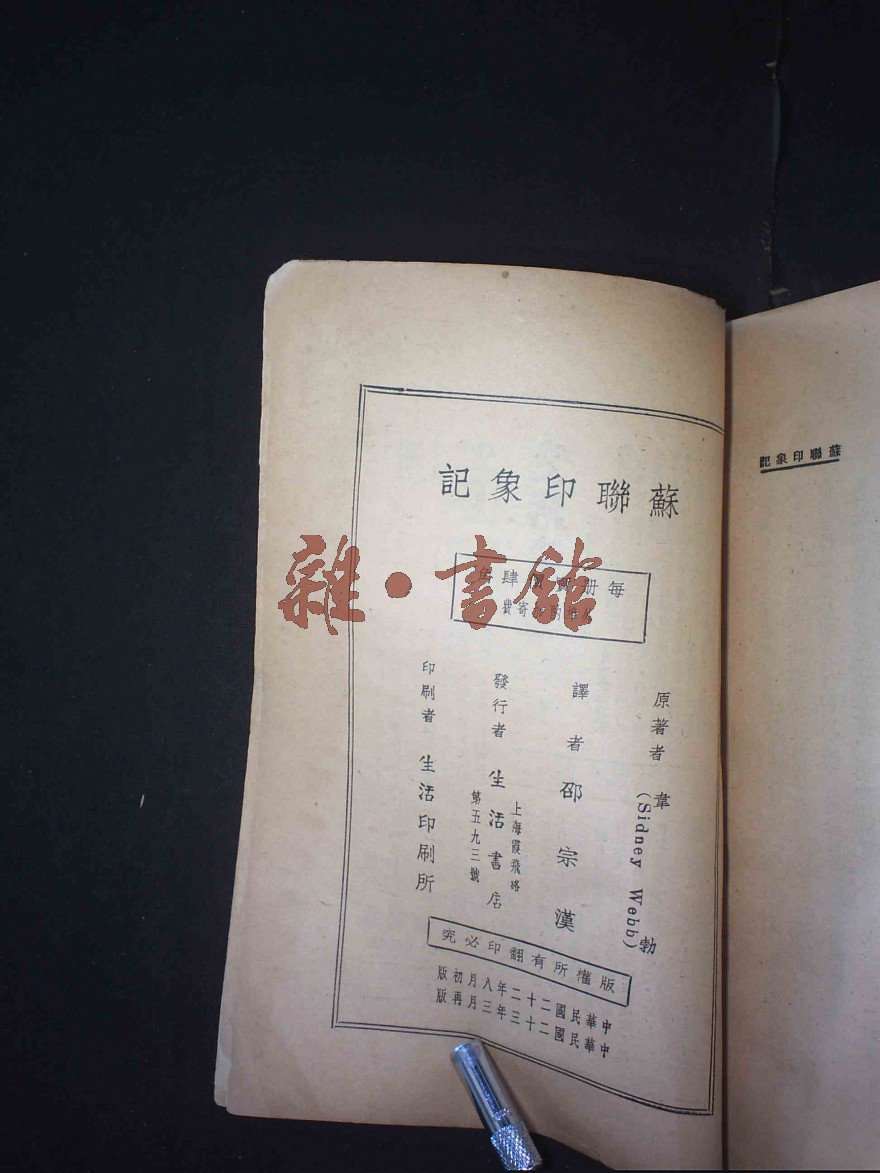 蘇聯印象記
每册
寄費
原著者 韋勃
(Sidney Webb)
譯者 邵宗漢
發行者 生活書店
上海霞飛路
第五九三號
印刷者 生活印刷所
版權所有翻印必究
中華民國二十二年八月初版
中華民國二十三年三月再版
蘇聯印象記
雜·書館